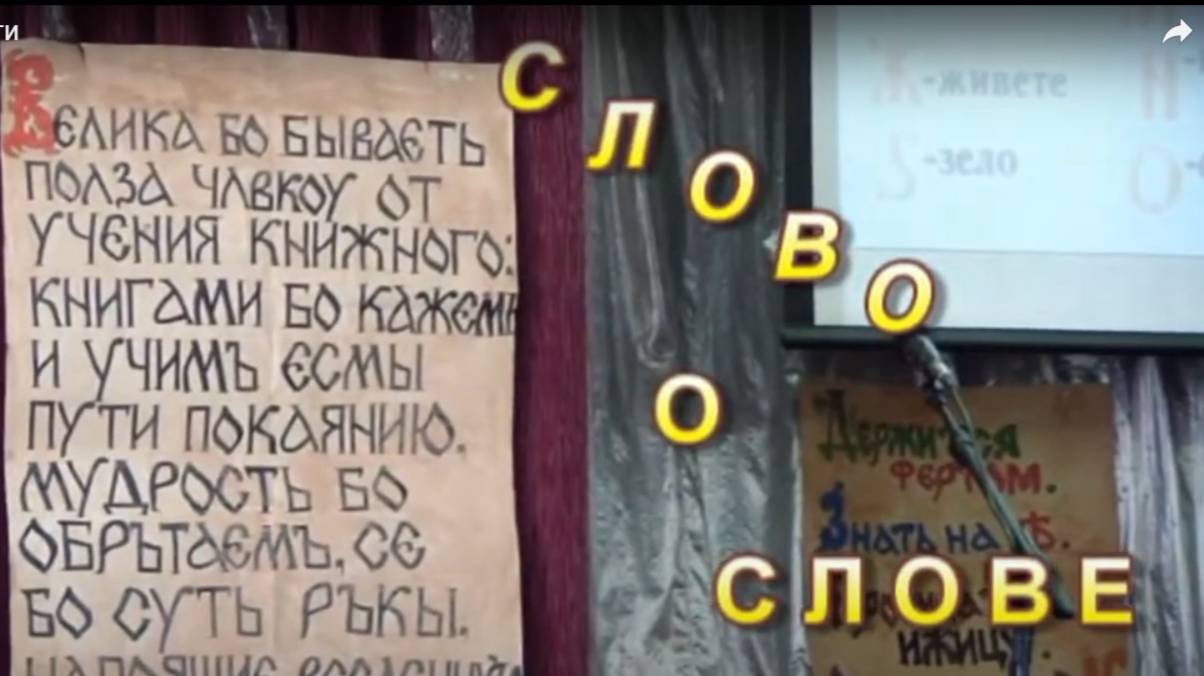 ти
Велика бо бываєть
полза члвкоу от
учения книжного:
книгами бо кажем
и учимъ єсмы
пути покаянию.
Мудрость бо
обрътаємъ, сє
бо суть ръкы.
напоящие
СЛОВО
О
СЛОВЕ
Ж -живете
Ѕ -зело
Держиться
фертом.
Знать на ѣ.
ижицу.